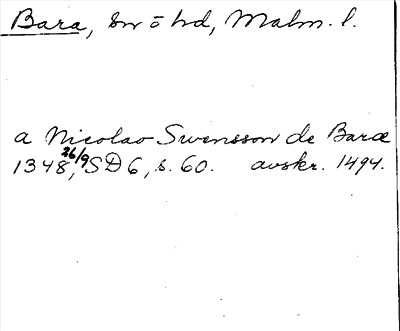 Bara, sn o hd, Malm. l.
a Nicolao Swensson de Baræ
1348, 26/9 SD 6, s. 60. avskr. 1494.